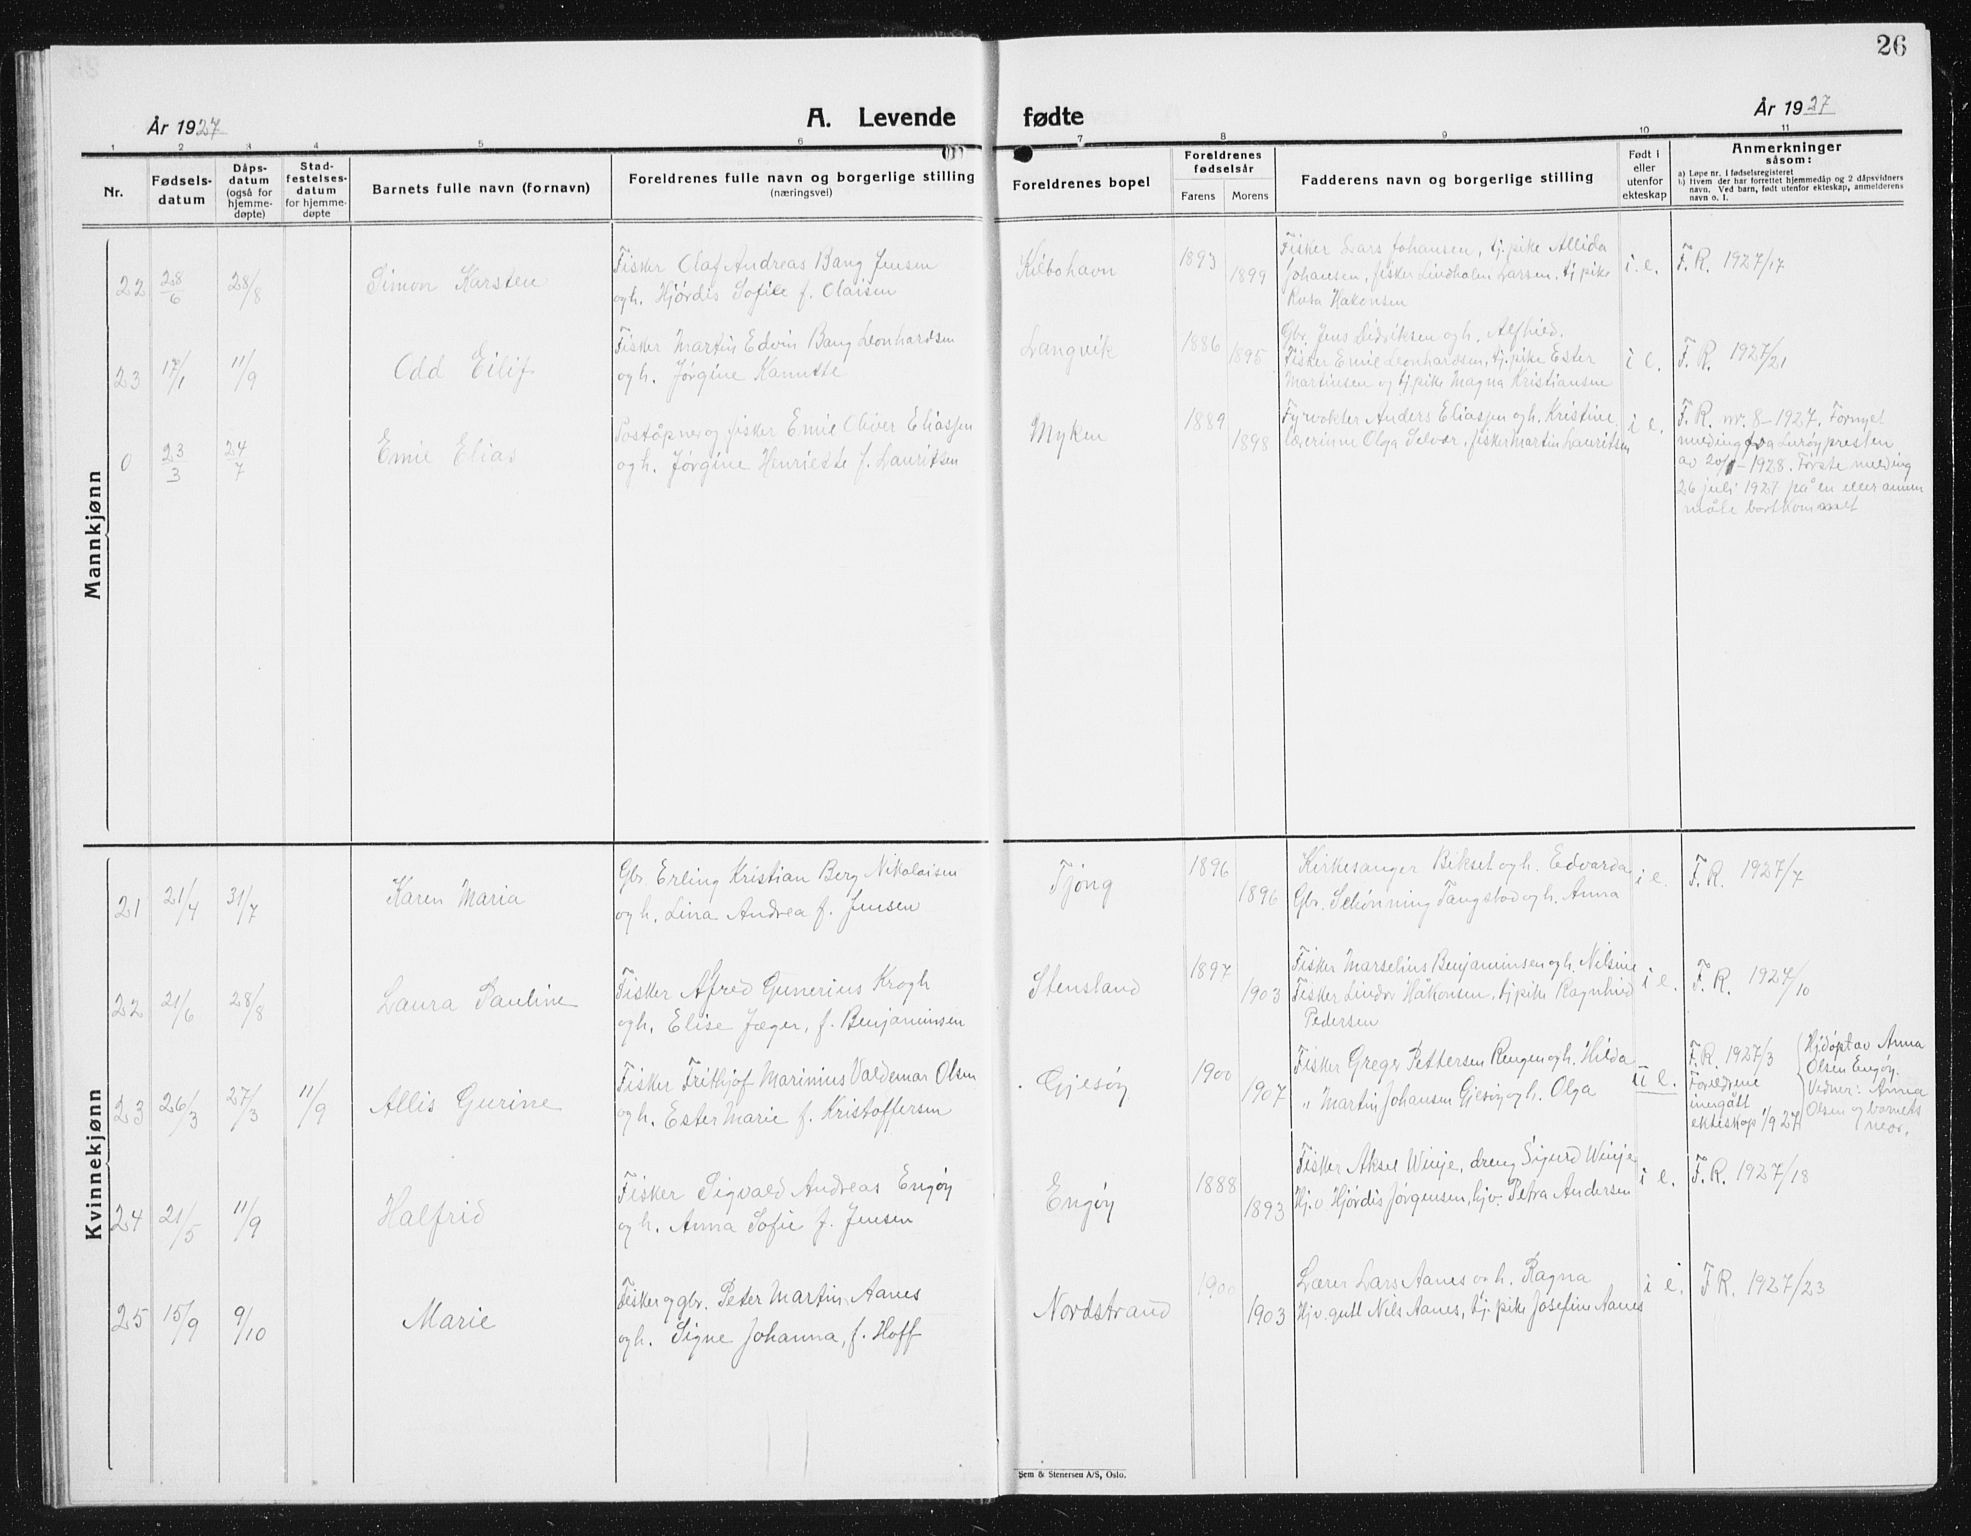 26
År 1927
A. Levende fødte
År 1927
1 2 3 4 5 6 7 8 9 10 11
Nr.
Fødsels-
datum
Dåps-
datum
(også for
hjemme-
døpte)
Stad-
festelses-
datum
for hjemme-
døpte
Barnets fulle navn (fornavn)
Foreldrenes fulle navn og borgerlige stilling
(næringsvei)
Foreldrenes bopel
Foreldrenes
fødselsår
Farens Morens
Fadderens navn og borgerlige stilling
Født i
eller
utenfor
ekteskap
Anmerkninger
såsom:
a) Løpe nr. i fødselsregisteret
b) Hvem der har forrettet hjemmedåp og 2 dåpsvidners
navn. Ved barn, født utenfor ekteskap, anmelderens
navn o. l.
Mannkjønn
22 28/6 28/8 Simon Karsten
Fisker Olaf Andreas Bang Jensen
og h. Hjørdis Sofie f. Olaisen
Kilbohavn 1893 1899
Fisker Lars Johansen, tj. pike Allida
Johansen, fisker Lindholm Larsen, tj pike
Rosa Hakonsen
i. e. F. R. 1927/17
23 17/1 11/9 Odd Eilif
Fisker Martin Edvin Bang Leonhardsen
og h. Jørgine Kanutte
Langvik 1886 1895
Gbr. Jens Didriksen og h. Alfhild.
Fisker Emil Leonhardsen, tj. pike Ester
Martinsen og tj. pike Magna Kristiansen
i e. F. R. 1927/21
0 23/3 24/7 Emil Elias
Poståpner og fisker Emil Oliver Eliassen
og h. Jørgine Henriette f. Lauritsen
Myken 1889 1898
Fyrvokter Anders Eliassen og h. Kristine
Lærerinne Olga Selvær, fisker Martin Lauritsen
i e. F. R. nr. 8-1927. Fornyet
melding fra Lurøypresten
av 20/1-1928. Første melding
26 juli 1927 på en eller annen
måte bortkommet
Kvinnekjønn
21 21/4 31/7 Karen Maria
Gbr. Erling Kristian Berg Nikolaisen
og h. Lina Andrea f. Jensen
Tjong 1896 1896
Kirkesanger Bikset og h. Edvarda
Gbr. Schønning Tangstad og h. Anna
i e. F. R. 1927/7
22 21/6 28/8 Laura Pauline
Fisker Alfred Gunerius Krogh
og h. Elise Jæger, f. Benjaminsen
Stensland 1897 1903
Fisker Marselius Benjaminsen og h. Nilsine
Fisker Lindor Håkonsen, tj pike Ragnhild
Pedersen
i e. F. R. 1927/10
23 26/3 27/3 11/9 Allis Gurine
Fisker Frithjof Marinius Valdemar Olsen
og h. Ester Marie f. Kristoffersen
Gjesøy 1900 1907
Fisker Greger Pettersen Rengen og h. Hilda
" Martin Johansen Gjesøy og h. Olga
u e.
F. R. 1927/3
Foreldrene
inngått
ekteskap 1/9 27
Hjdøpt av Anna
Olsen Engøy.
Vidner: Anna
Olsen og barnets
mor.
24 21/5 11/9 Halfrid
Fisker Sigvald Andreas Engøy
og h. Anna Sofie f. Jensen
Engøy 1888 1893
Fisker Aksel Winje, dreng Sigurd Winje
Hj.v Hjørdis Jørgensen, hjv. Petra Andersen
i e. F. R. 1927/18
25 15/9 9/10 Marie
Fisker og gbr. Peter Martin Aanes
og h. Signe Johanna, f. Hoff
Nordstrand 1900 1903
Lærer Lars Aanes og h. Ragna
Hjv. gutt Nils Aanes, tj. pike Josefine Aanes
i e. F R. 1927/23
Sem & Stenersen A/S, Oslo.